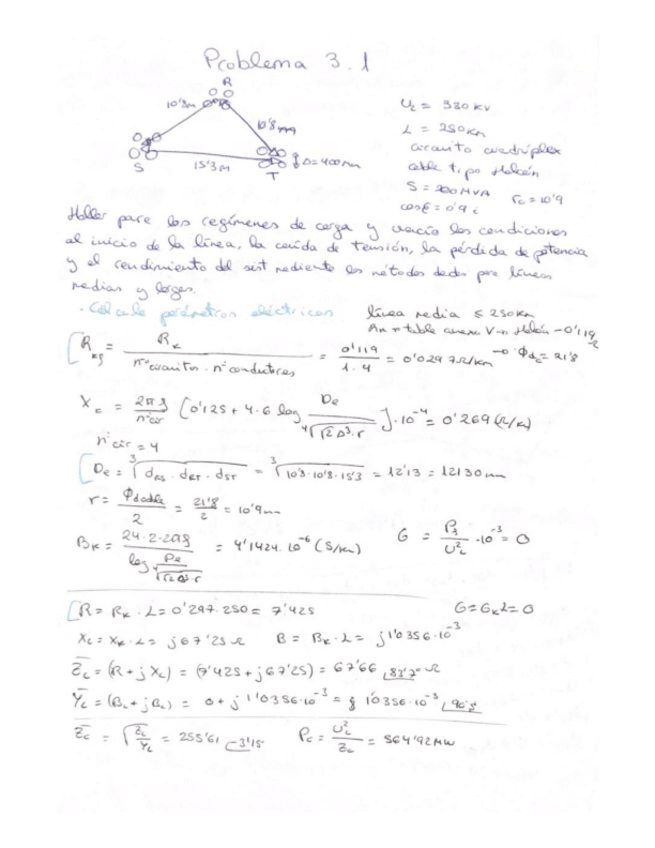 Problema 3.1
R
10'8m
10'8m
S
15'3m
T
Δ=400mm
UL = 380 kV
L = 250 Km
circuito cuádruplex
cable tipo Halcón
S = 200 MVA
rc = 10'9
cosφ = 0'9 i
Hallar para los regímenes de carga y vacío las condiciones
al inicio de la línea, la caída de tensión, la pérdida de potencia
y el rendimiento del mediante los métodos dados para líneas
medias y largas.
· Cálculo parámetros eléctricos
línea media ≤ 250Km
tabla anexo V → Halcón → 0'119 Ω
→ Φdc = 21'8
Rkg = RK / nº circuitos · nº conductores = 0'119 / 1·4 = 0'0297 Ω/Km
XK = 2πf / nºcir [0'125 + 4·6 log De / ⁴√(√2 Δ³·r)] · 10⁻⁴ = 0'269 (Ω/K)
nºcir = 4
De = ³√(dRS · dRT · dST) = ³√(10'8·10'8·15'3) = 12'13 = 12130 mm
r = Φdoble / 2 = 21'8 / 2 = 10'9 mm
BK = 24·2·2πf / log De / ⁴√(√2Δ³·r) = 4'1424·10⁻⁶ (S/Km)
G = Pf / UL² · 10⁻³ = 0
R = RK · L = 0'297·250 = 7'425
G = GK L = 0
XL = XK · L = j67'25 Ω
B = BK · L = j1'0356·10⁻³
ZL = (R + jXL) = (7'425 + j67'25) = 67'66 ∠83'7° Ω
YL = (GL + jBL) = 0 + j1'0356·10⁻³ = 1'0356·10⁻³ ∠90° S
Zc = √(ZL / YL) = 255'61 ∠-3'15
Pc = UL² / Zc = 564'92 MW